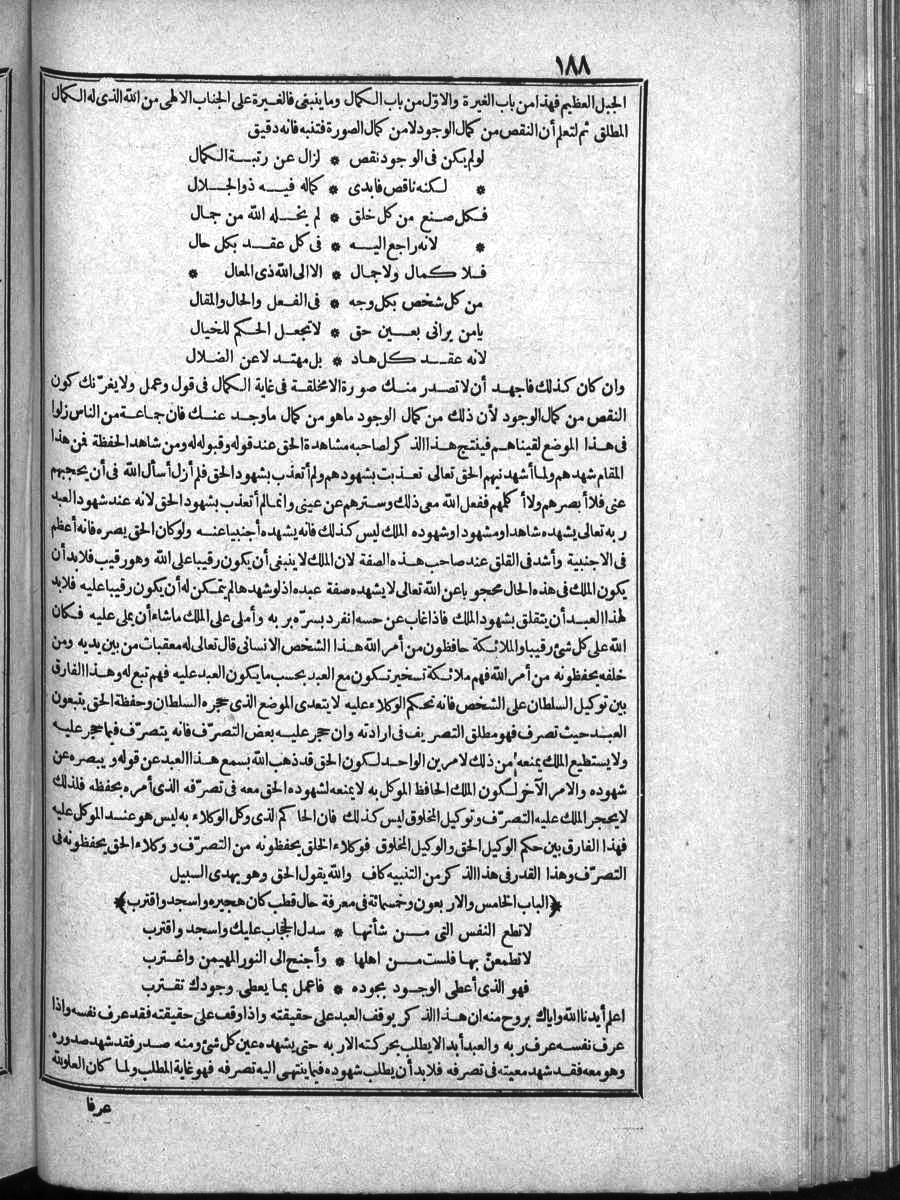 ١٨٨
الجبل العظيم فهذا من باب الغيرة والاوّل من باب الكمال وما ينبغى فالغيرة على الجناب الالهى من الله الذى له الكمال
المطلق ثم لتعلم أن النقص من كمال الوجود لا من كمال الصورة فتنبه فانه دقيق
لولم يكن فى الوجود نقص * لزال عن رتبة الكمال
* لكنه ناقص فابدى * كماله فيه ذو الجلال
فكل صنع من كل خلق * لم يخله الله من جمال
* لانه راجع اليه * فى كل عقد بكل حال
فلا كمال ولا جمال * الا الى الله ذى المعال *
من كل شخص بكل وجه * فى الفعل والحال والمقال
يا من يرانى بعين حق * لا تجعل الحكم للخيال
لانه عقد كل هاد * بل مهتد لا عن الضلال
وان كان كذلك فاجهد أن لا تصدر منك صورة الا مخلقة فى غاية الكمال فى قول وعمل ولا يغرّنك كون
النقص من كمال الوجود لأن ذلك من كمال الوجود ما هو من كمال ما وجد عنك فان جماعة من الناس زلوا
فى هذا الموضع لقيناهم فينتج هذا الذكر لصاحبه مشاهدة الحق عند قوله وقبوله له ومن شاهد الحفظة فمن هذا
المقام شهدهم ولما أشهدنيهم الحق تعالى تعذبت بشهودهم ولم أتعذب بشهود الحق فلم أزل أسأل الله فى أن يحجبهم
عنى فلا أبصرهم ولا أكلمهم ففعل الله معى ذلك وسترهم عن عينى وانما لم أتعذب بشهود الحق لانه عند شهود العبد
ربه تعالى يشهده شاهدا ومشهودا وشهوده الملك ليس كذلك فانه يشهده أجنبيا عنه ولو كان الحق بصره فانه أعظم
فى الاجنبية وأشد فى القلق عند صاحب هذه الصفة لان الملك لا ينبغى أن يكون رقيبا على الله وهو رقيب فلا بد أن
يكون الملك فى هذه الحال محجوبا عن الله تعالى لا يشهده صفة عبده اذ لو شهدها لم يتمكن له أن يكون رقيبا عليه فلا بد
لهذا العبد أن يتقلق بشهود الملك فاذا غاب عن حسه انفرد بسرّه بربه وأملى على الملك ماشاء أن يملى عليه فكان
الله على كل شئ رقيبا والملائكة حافظون من أمر الله هذا الشخص الانسانى قال تعالى له معقبات من بين يديه ومن
خلفه يحفظونه من أمر الله فهم ملائكة تسخير تكون مع العبد بحسب ما يكون العبد عليه فهم تبع له وهذا الفارق
بين توكيل السلطان على الشخص فانه تحكم الوكلاء عليه لا يتعدى الموضع الذى حجره السلطان وحفظة الحق يتبعون
العبد حيث تصرف فهو مطلق التصريف فى ارادته وان حجر عليه بعض التصرّف فانه يتصرّف فيما حجر عليه
ولا يستطيع الملك يمنعه من ذلك لامرين الواحد لكون الحق قد ذهب الله بسمع هذا العبد عن قوله وببصره عن
شهوده والامر الآخر لكون الملك الحافظ الموكل به لا يمنعه لشهوده الحق معه فى تصرّفه الذى أمره بحفظه فلذلك
لا يحجر الملك عليه التصرّف وتوكيل المخلوق ليس كذلك فان الحاكم الذى وكل الوكلاء به ليس هو عند الموكل عليه
فهذا الفارق بين حكم الوكيل الحق والوكيل المخلوق فوكلاء الخلق يحفظونه من التصرّف ووكلاء الحق يحفظونه فى
التصرّف وهذا القدر فى هذا الذكر من التنبيه كاف والله يقول الحق وهو يهدى السبيل
﴿الباب الخامس والاربعون وخمسمائة فى معرفة حال قطب كان هجيره واسجد واقترب﴾
لا تطع النفس التى من شأنها * سدل الحجاب عليك واسجد واقترب
لا تطمعنّ بها فلست من اهلها * وأجنح الى النور المهيمن واغترب
فهو الذى أعطى الوجود بجوده * فاعمل بما يعطى وجودك تقترب
اعلم أيدنا الله واياك بروح منه ان هذا الذكر يوقف العبد على حقيقته واذا وقف على حقيقته فقد عرف نفسه واذا
عرف نفسه عرف ربه والعبد أبدا لا يطلب بحركته الا ربه حتى يشهده عين كل شئ ومنه صدر فقد شهد صدوره
وهو معه فقد شهد معيته فى تصرفه فلا بد أن يطلب شهوده فيما ينتهى اليه تصرفه فهو غاية المطلب ولما كان العلو لله
عرفا